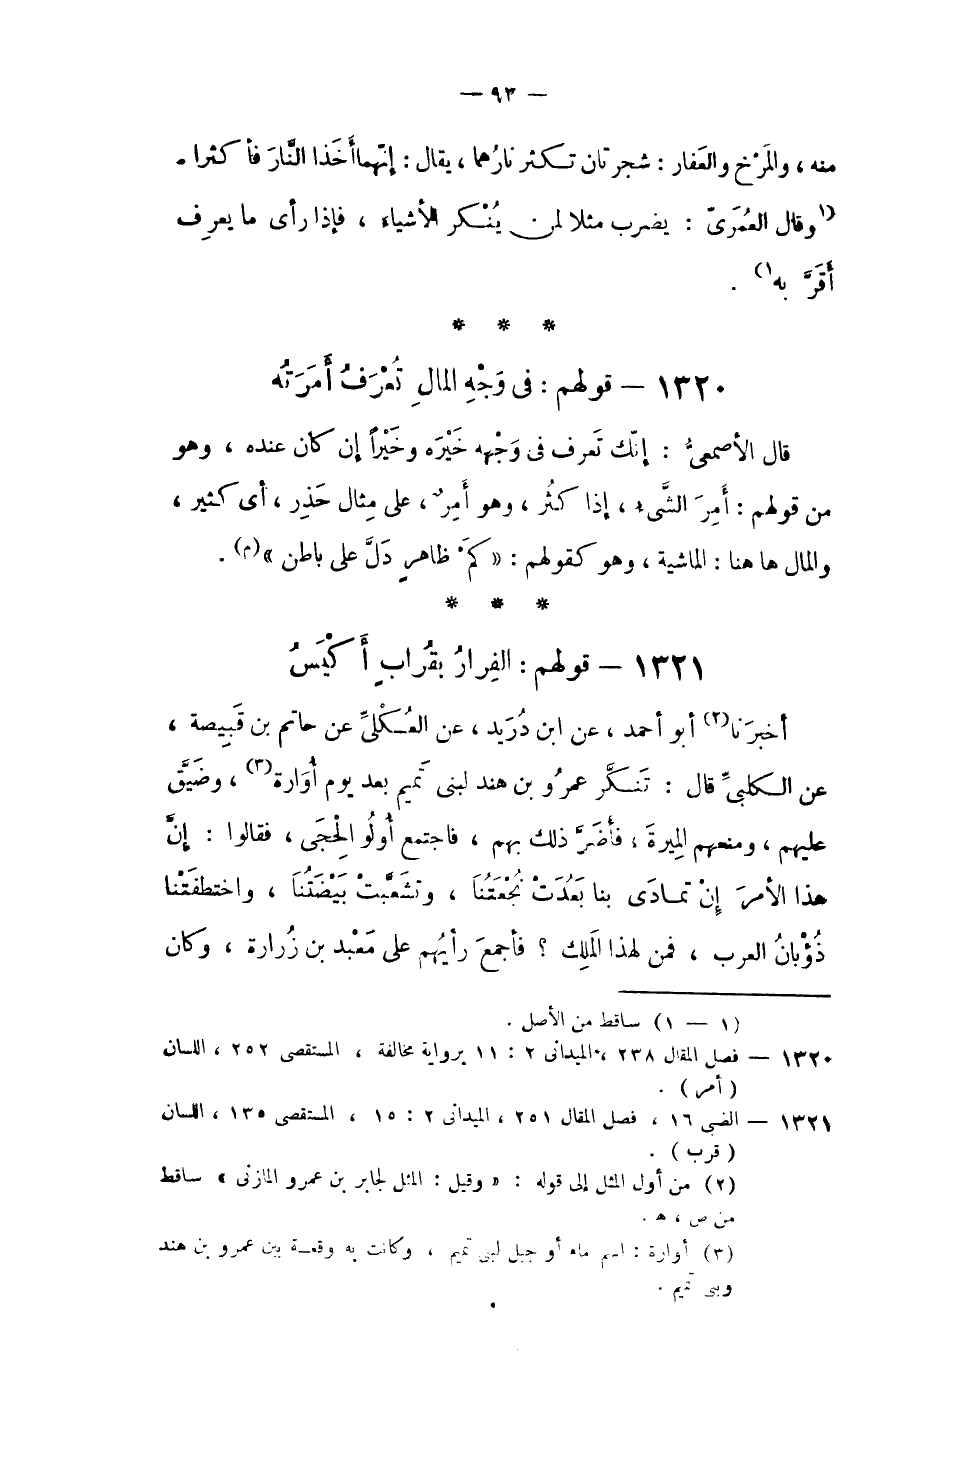 — ٩٣ —
منه ، والمَرْخ والعَفار : شجرتان تكثر نارُهما ، يقال : إنّهما أَخَذا النَّارَ فأكثرا .
(١وقال العُمَرىّ : يضرب مثلا لمن يُنْكر الأشياء ، فإذا رأى ما يعرِف
أَقَرَّ به١) .
* * *
١٣٢٠ — قولهم : فى وَجْهِ المالِ تُعْرَفُ أَمَرَتُه
قال الأصمعىُّ : إنّك تَعرف فى وَجْهه خَيْرَه وخَيْراً إن كان عنده ، وهو
من قولهم : أَمِرَ الشَّىء ، إذا كثُر ، وهو أَمِرٌ ، على مِثال حَذِر ، أى كثير ،
والمال ها هنا : الماشية ، وهو كقولهم : « كَمْ ظاهرٍ دَلَّ على باطن »(م) .
* * *
١٣٢١ — قولهم : الفِرارُ بقُرابٍ أَكْيَسُ
أخبرَنا(٢) أبو أحمد ، عن ابن دُرَيد ، عن العُكْلىِّ عن حاتم بن قَبِيصة ،
عن الكلبىِّ قال : تَنَكَّر عمرُو بن هند لبنى تَميم بعد يوم أُوَارة(٣) ، وضَيَّق
عليهم ، ومنعهم المِيرةَ ، فأَضَرَّ ذلك بهم ، فاجتمع أُولُو الحِجَى ، فقالوا : إنَّ
هذا الأمرَ إِنْ تمادَى بنا بَعُدَتْ نُجْعَتُنَا ، وتشعَّبتْ بَيْضَتُنَا ، واختطفَتْنا
ذُؤْبانُ العرب ، فمن لهذا المَلِك ؟ فأجمعَ رأيُهم على مَعْبد بن زُرارة ، وكان
(١ — ١) ساقط من الأصل .
١٣٢٠ — فصل المقال ٢٣٨ ، الميدانى ٢ : ١١ برواية مخالفة ، المستقصى ٢٥٢ ، اللسان
( أمر ) .
١٣٢١ — الضبى ١٦ ، فصل المقال ٢٥١ ، الميدانى ٢ : ١٥ ، المستقصى ١٣٥ ، اللسان
( قرب ) .
(٢) من أول المثل إلى قوله : « وقيل : المثل لجابر بن عمرو المازنى » ساقط
من ص ، ھ .
(٣) أوارة : اسم ماء أو جبل لبنى تميم ، وكانت به وقعة بين عمرو بن هند
وبنى تميم .